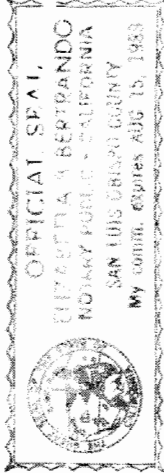 OFFICIAL SEAL
BERTRANDO
NOTARY PUBLIC - CALIFORNIA
SAN LUIS OBISPO COUNTY
My comm. expires AUG 15, 1983